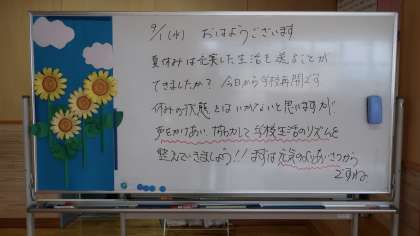 9/1(水) おはようございます
夏休みは充実した生活を送ることが
できましたか? 今日から学校再開です
休みの状態とはいかないと思いますが
声をかけあい、 して学校生活のリズムを
整えていきましょう!! まずは元気のよいあいさつから
ですね